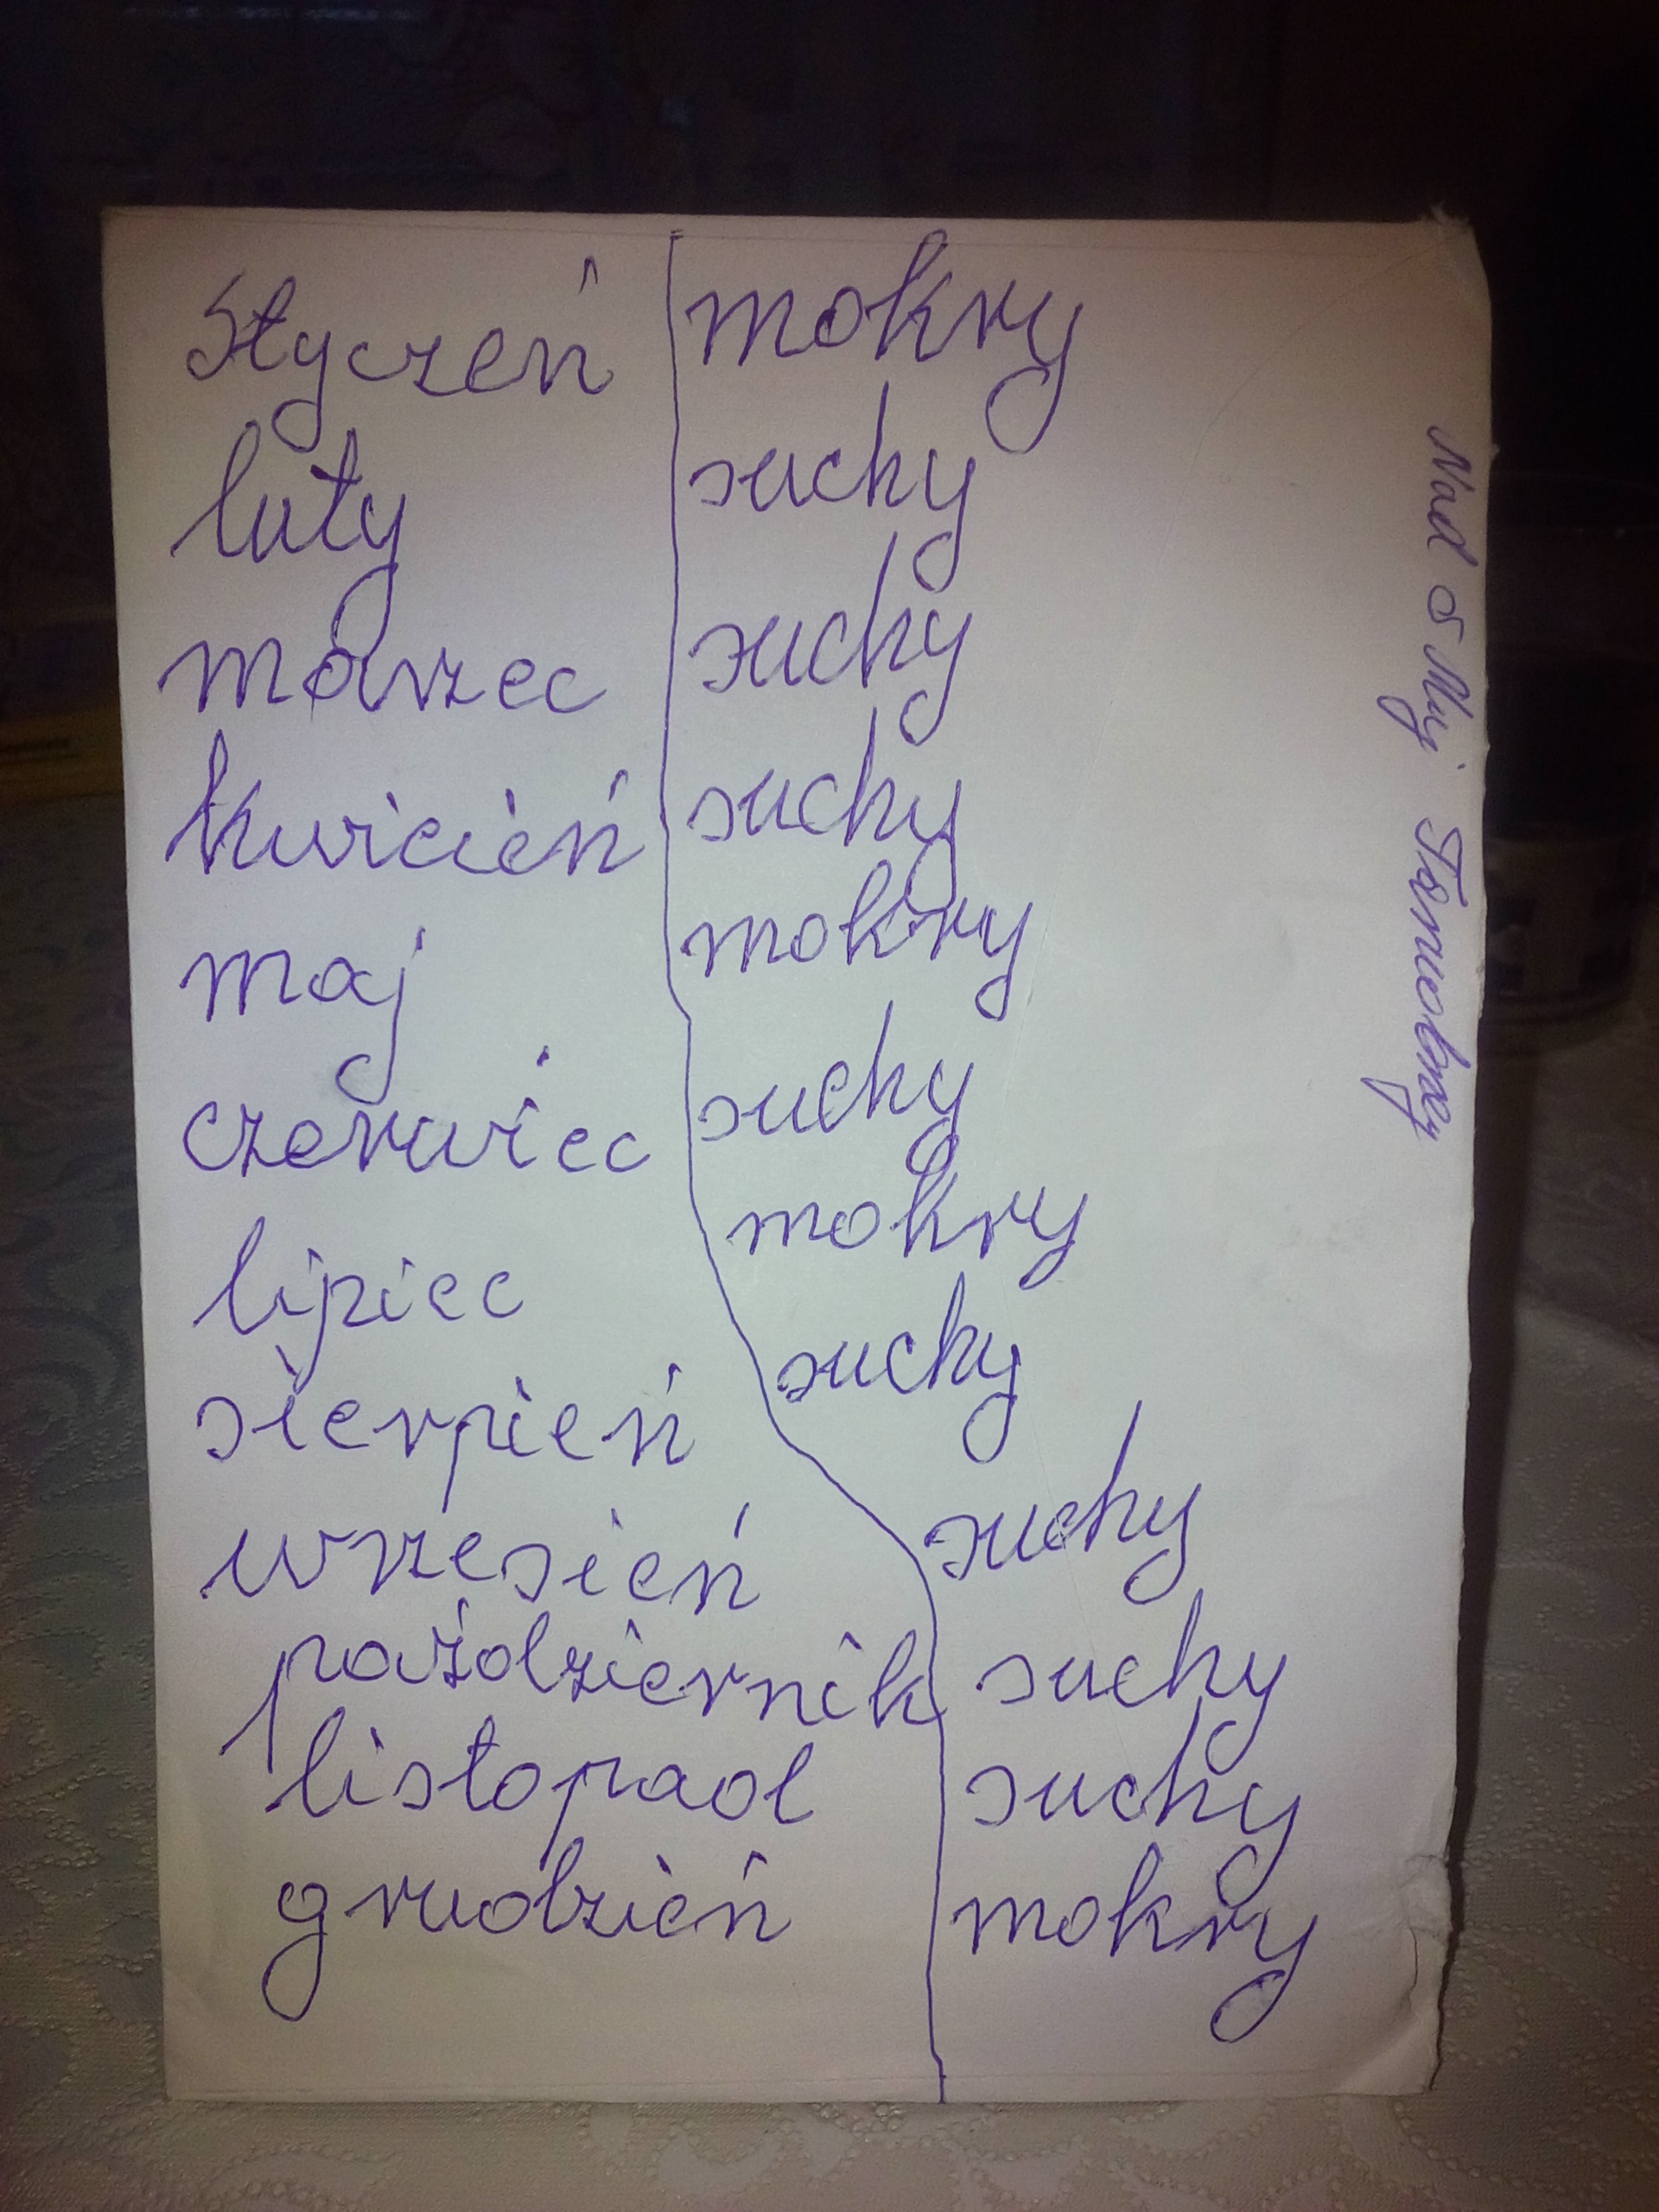 Styczeń mokry
luty suchy
marzec suchy
kwicień suchy
maj mokry
czerwiec suchy
lipiec mokry
sierpień suchy
wrzesień suchy
październik suchy
listopad suchy
grudzień mokry
Nad